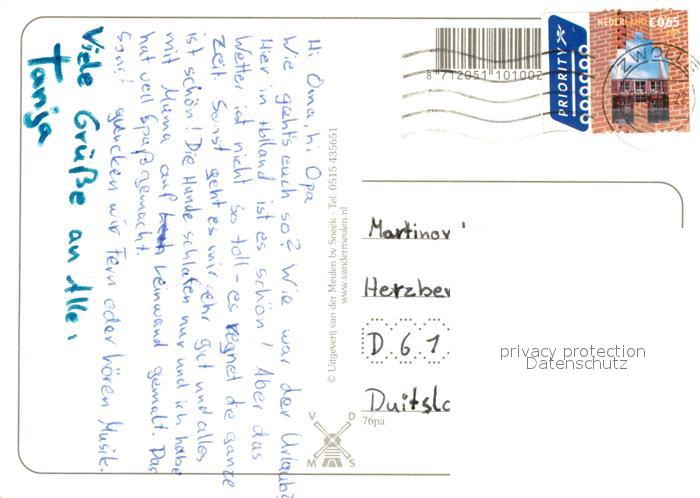 Hi Oma, hi Opa
Wie gehts euch so? Wie war der Urlaub?
Hier in Holland ist es schön! Aber das
Wetter ist nicht so toll - es regnet die ganze
Zeit. Sonst geht es mir sehr gut und alles
ist schön! Die Hunde schlafen nur und ich habe
mit Mama auf Leinwand gemalt. Das
hat voll Spaß gemacht.
Sonst gucken wir Fern oder hören Musik.
Viele Grüße an Alle,
Tanja
© Uitgeverij van der Meulen bv Sneek - Tel. 0515 435651
www.vandermeulen.nl
8 712051 101002
PRIORITY
NEDERLAND €0,65
ZWOLLE
Martinov
Herzber
D 6 1
Duitsla
privacy protection
Datenschutz
V D
M S
76pa